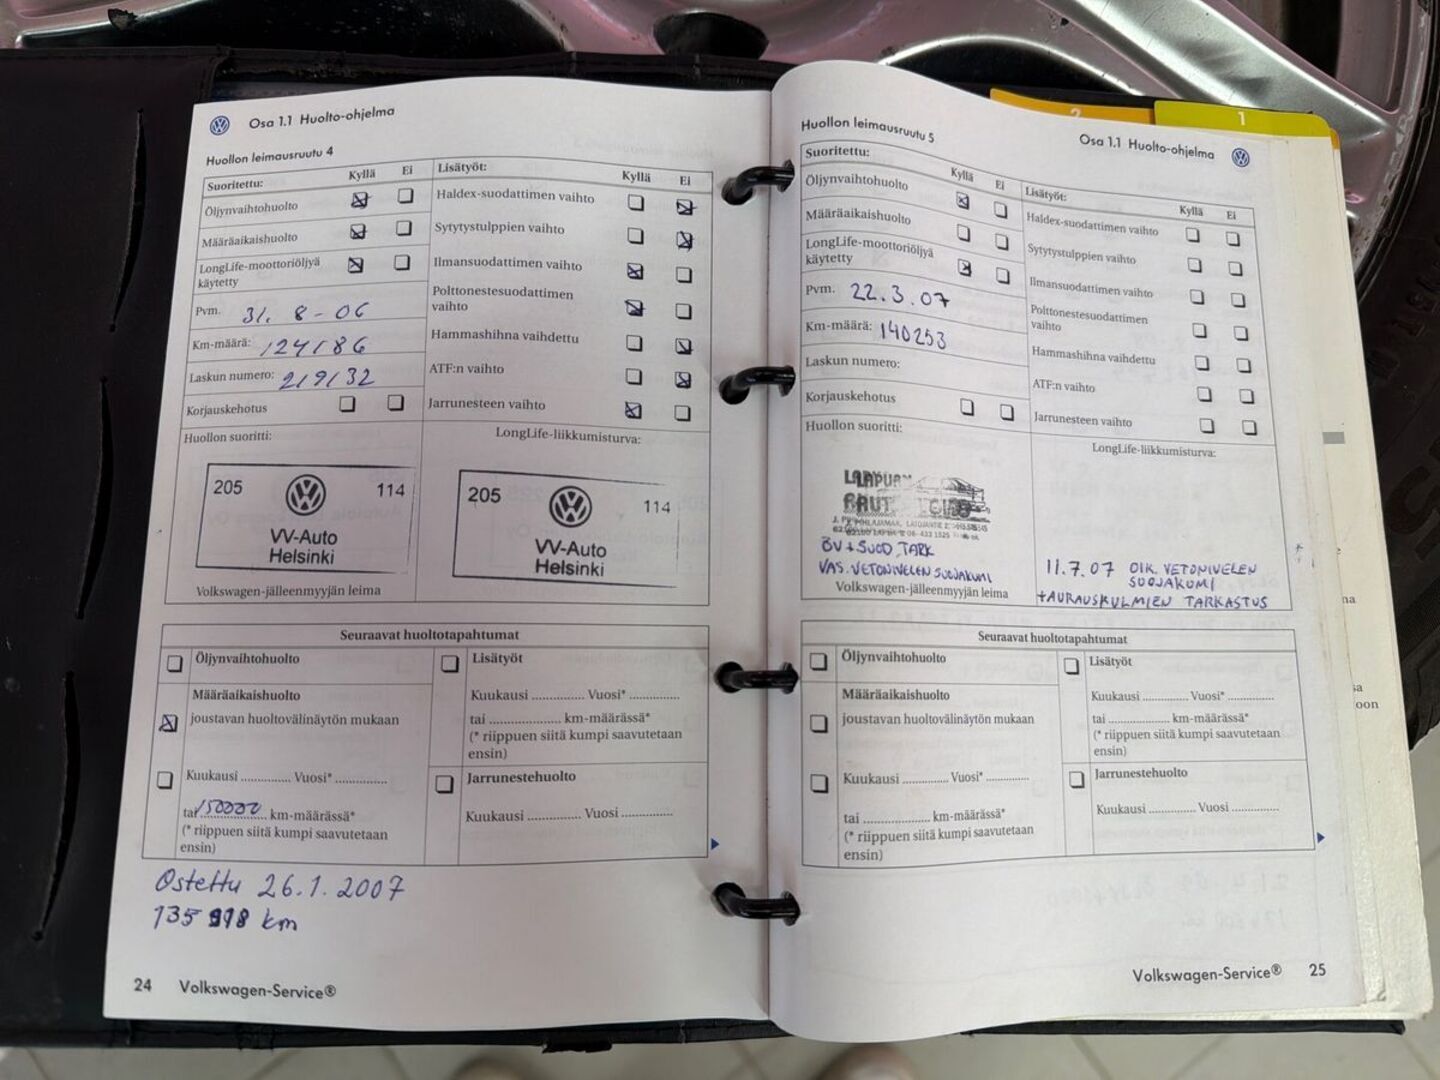 Osa 1.1 Huolto-ohjelma
Huollon leimausruutu 4
Suoritettu: Kyllä Ei
Öljynvaihtohuolto
Määräaikaishuolto
LongLife-moottoriöljyä
käytetty
Pvm. 31. 8 - 06
Km-määrä: 124186
Laskun numero: 219132
Korjauskehotus
Lisätyöt: Kyllä Ei
Haldex-suodattimen vaihto
Sytytystulppien vaihto
Ilmansuodattimen vaihto
Polttonestesuodattimen
vaihto
Hammashihna vaihdettu
ATF:n vaihto
Jarrunesteen vaihto
Huollon suoritti:
205 114
VV-Auto
Helsinki
Volkswagen-jälleenmyyjän leima
LongLife-liikkumisturva:
205 114
VV-Auto
Helsinki
Seuraavat huoltotapahtumat
Öljynvaihtohuolto
Määräaikaishuolto
joustavan huoltovälinäytön mukaan
Kuukausi .............. Vuosi* ..............
tai 150000 km-määrässä*
(* riippuen siitä kumpi saavutetaan
ensin)
Lisätyöt
Kuukausi .............. Vuosi* ..............
tai .................... km-määrässä*
(* riippuen siitä kumpi saavutetaan
ensin)
Jarrunestehuolto
Kuukausi .............. Vuosi ..............
Ostettu 26.1.2007
135 918 km
24 Volkswagen-Service®
Osa 1.1 Huolto-ohjelma
Huollon leimausruutu 5
Suoritettu: Kyllä Ei
Öljynvaihtohuolto
Määräaikaishuolto
LongLife-moottoriöljyä
käytetty
Pvm. 22.3.07
Km-määrä: 140253
Laskun numero:
Korjauskehotus
Lisätyöt: Kyllä Ei
Haldex-suodattimen vaihto
Sytytystulppien vaihto
Ilmansuodattimen vaihto
Polttonestesuodattimen
vaihto
Hammashihna vaihdettu
ATF:n vaihto
Jarrunesteen vaihto
Huollon suoritti:
LAPUAN
ÖV + SUOD, TARK
VAS. VETONIVELEN SUOJAKUMI
Volkswagen-jälleenmyyjän leima
LongLife-liikkumisturva:
11.7.07 OIK. VETONIVELEN
SUOJAKUMI
+AURAUSKULMIEN TARKASTUS
Seuraavat huoltotapahtumat
Öljynvaihtohuolto
Määräaikaishuolto
joustavan huoltovälinäytön mukaan
Kuukausi .............. Vuosi* ..............
tai .................... km-määrässä*
(* riippuen siitä kumpi saavutetaan
ensin)
Lisätyöt
Kuukausi .............. Vuosi* ..............
tai .................... km-määrässä*
(* riippuen siitä kumpi saavutetaan
ensin)
Jarrunestehuolto
Kuukausi .............. Vuosi ..............
Volkswagen-Service® 25
2
1